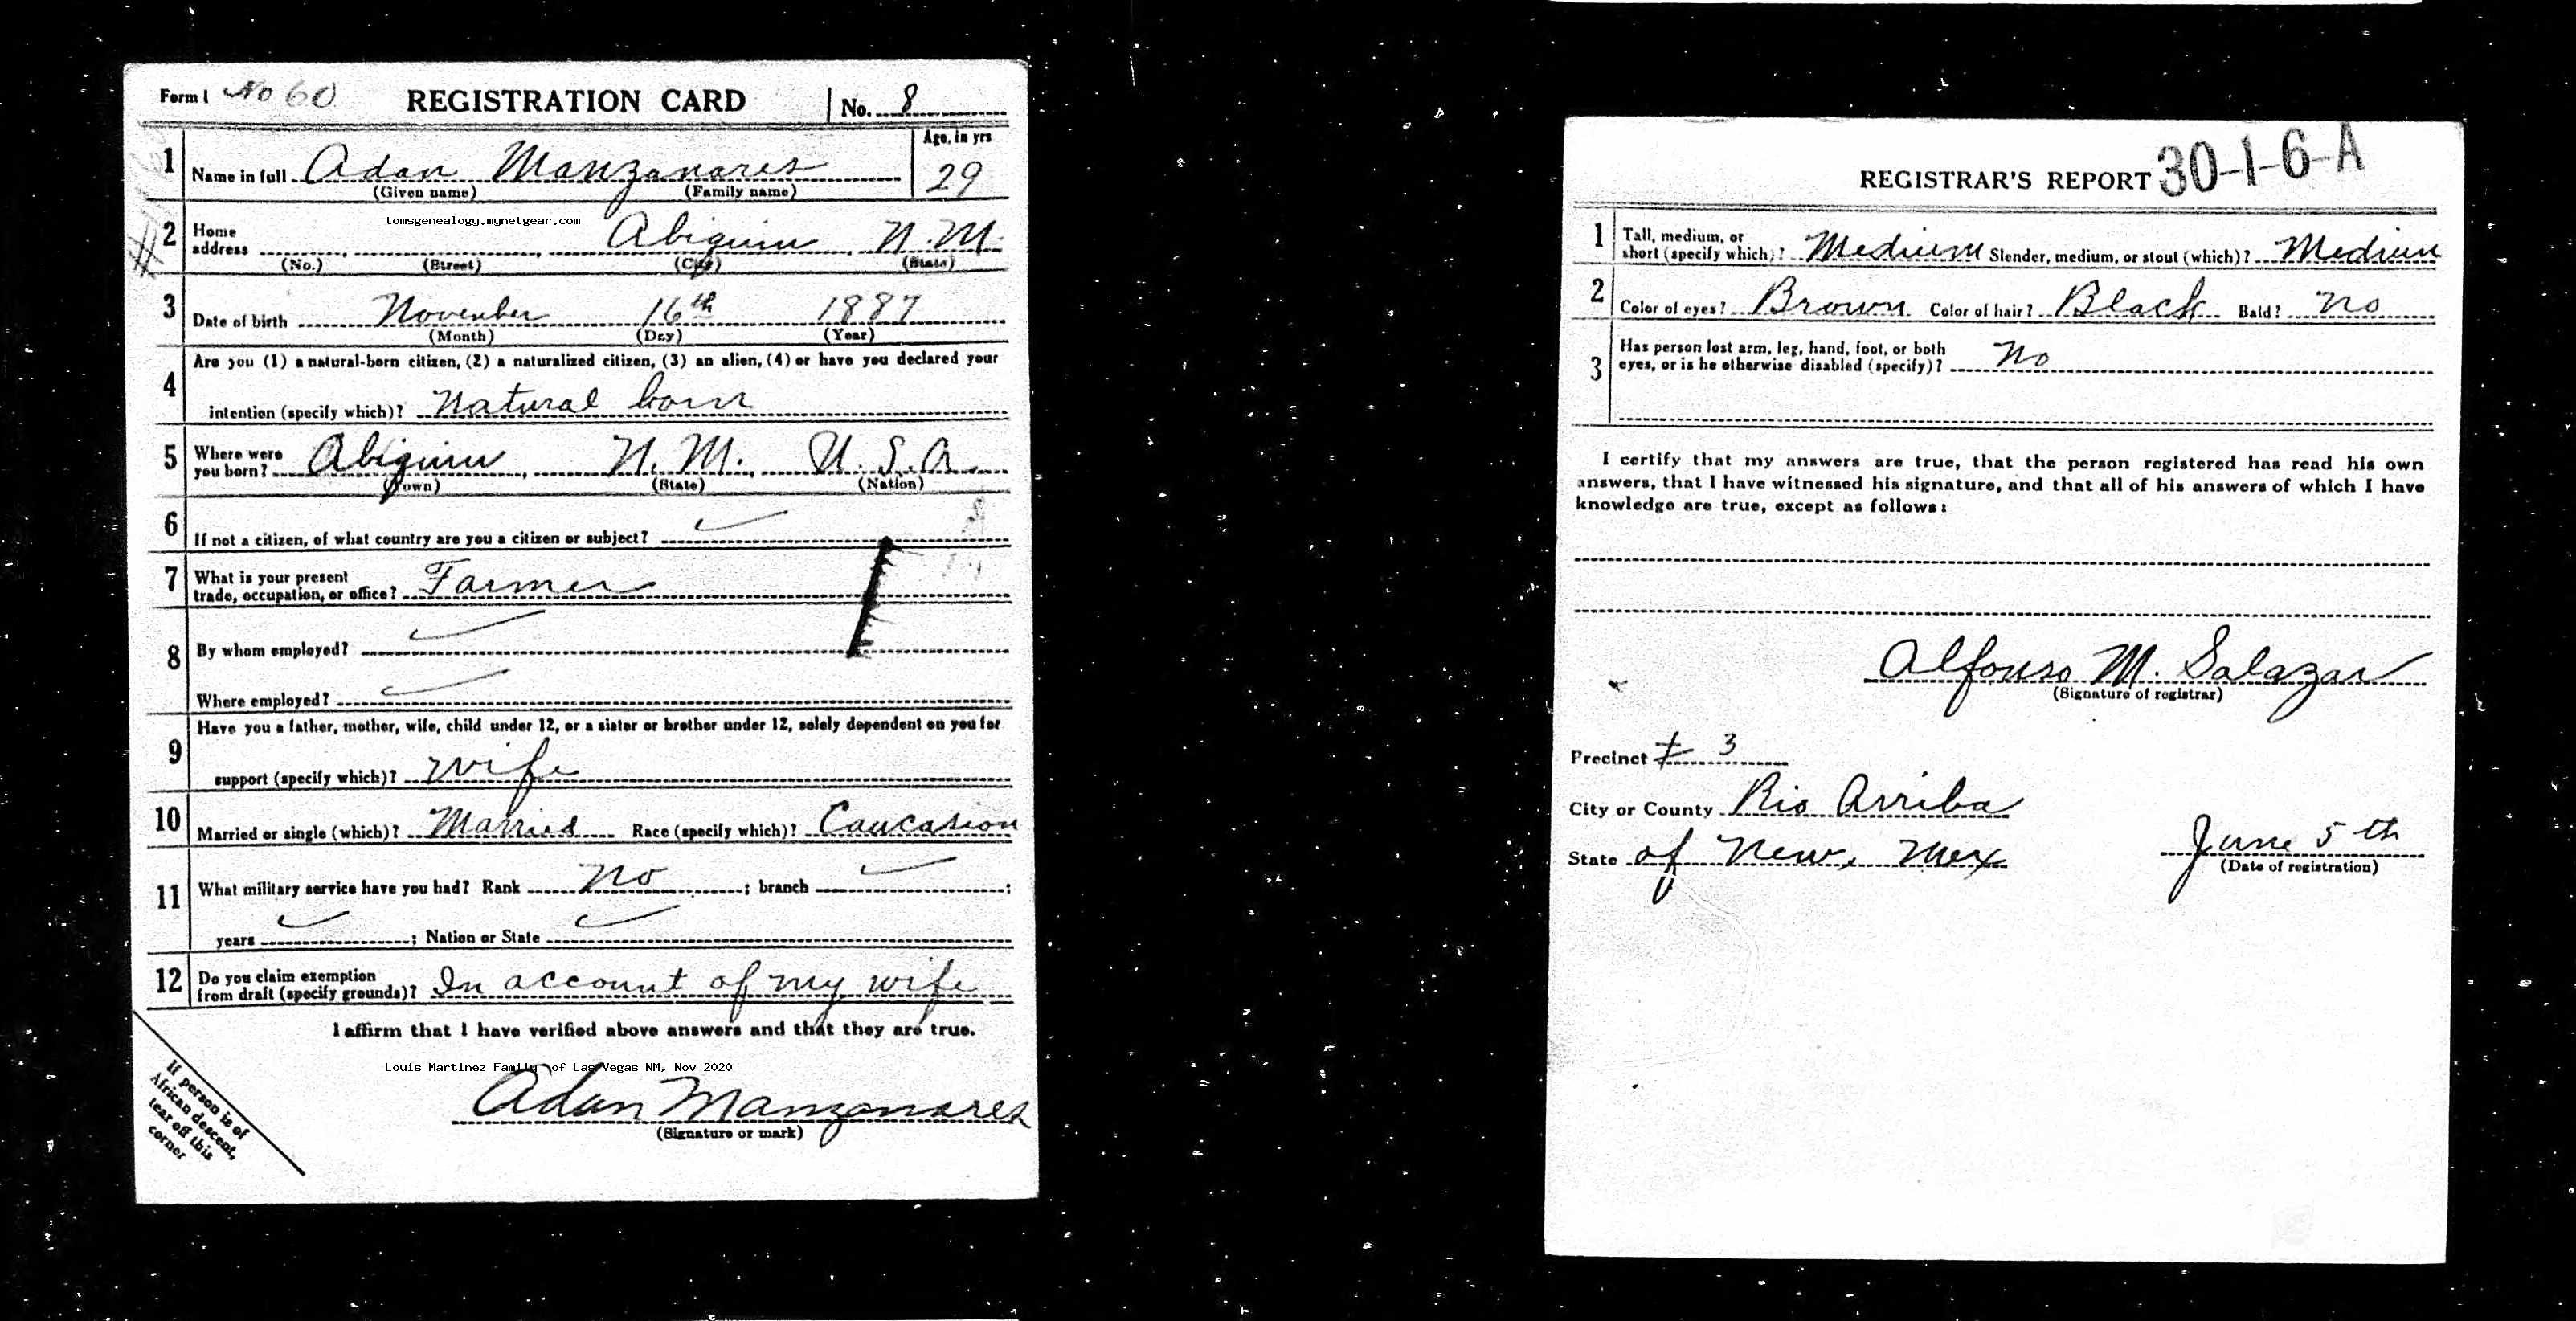 Form 1 No 60 REGISTRATION CARD No. 8
1 Name in full Adan Manzanares Age, in yrs 29
(Given name) (Family name)
tomsgenealogy.mynetgear.com
2 Home address Abiquiu, N.M.
(No.) (Street) (City) (State)
3 Date of birth November 16th 1887
(Month) (Day) (Year)
4 Are you (1) a natural-born citizen, (2) a naturalized citizen, (3) an alien, (4) or have you declared your
intention (specify which)? Natural born
5 Where were you born? Abiquiu, N.M., U.S.A.
(Town) (State) (Nation)
6 If not a citizen, of what country are you a citizen or subject?
7 What is your present
trade, occupation, or office? Farmer
8 By whom employed?
Where employed?
9 Have you a father, mother, wife, child under 12, or a sister or brother under 12, solely dependent on you for
support (specify which)? Wife
10 Married or single (which)? Married Race (specify which)? Caucasion
11 What military service have you had? Rank No ; branch ;
years ; Nation or State
12 Do you claim exemption
from draft (specify grounds)? In account of my wife
I affirm that I have verified above answers and that they are true.
Louis Martinez Family of Las Vegas NM, Nov 2020
Adan Manzanares
(Signature or mark)
If person is of
African descent,
tear off this
corner
REGISTRAR'S REPORT 30-1-6-A
1 Tall, medium, or
short (specify which)? Medium Slender, medium, or stout (which)? Medium
2 Color of eyes? Brown Color of hair? Black Bald? No
3 Has person lost arm, leg, hand, foot, or both
eyes, or is he otherwise disabled (specify)? No
I certify that my answers are true, that the person registered has read his own
answers, that I have witnessed his signature, and that all of his answers of which I have
knowledge are true, except as follows:
Alfonso M. Salazar
(Signature of registrar)
Precinct # 3
City or County Rio Arriba
State of New. Mex
June 5th
(Date of registration)